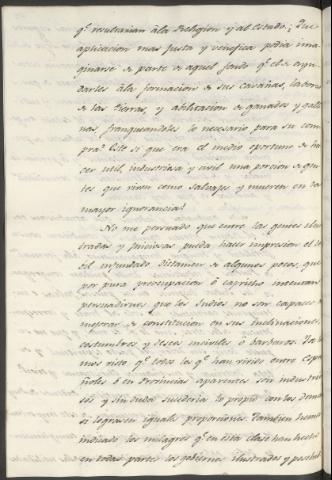 q.e resultarian á la Religion y al estado. ¿Que
aplicacion mas justa y venefica podia ima
ginarse de parte de aquel fondo q.e el de ayu
darles á la formacion de sus casañas, labores
de las tierras, y abilitacion de ganados y galli
nas, franqueandoles lo necesario para su com
pra? Este si que era el medio oportuno de ha
cer util, industriosa y civil una porcion de gen
tes que viven como salvajes y mueren en la
mayor ignorancia!
No me persuado que entre las gentes ilus
tradas y juiciosas pueda hacer impresion el
debil infundado dictamen de algunos pocos, que
por pura preocupacion ó capricho intentan
persuadirnos que los Indios no son capaces de
mejorar de constitucion en sus inclinaciones,
costumbres y deseos inciviles ó barbaros. Ya he
mos visto q.e todos los q.e han vivido entre Espa
ñoles ó en Provincias aparentes son industrio
sos y sin duda sucederia lo propio con los demas
si lograsen iguales proporciones. Tambien hemos
indicado los milagros q.e en esta clase han hecho
en todas partes los gobiernos ilustrados y